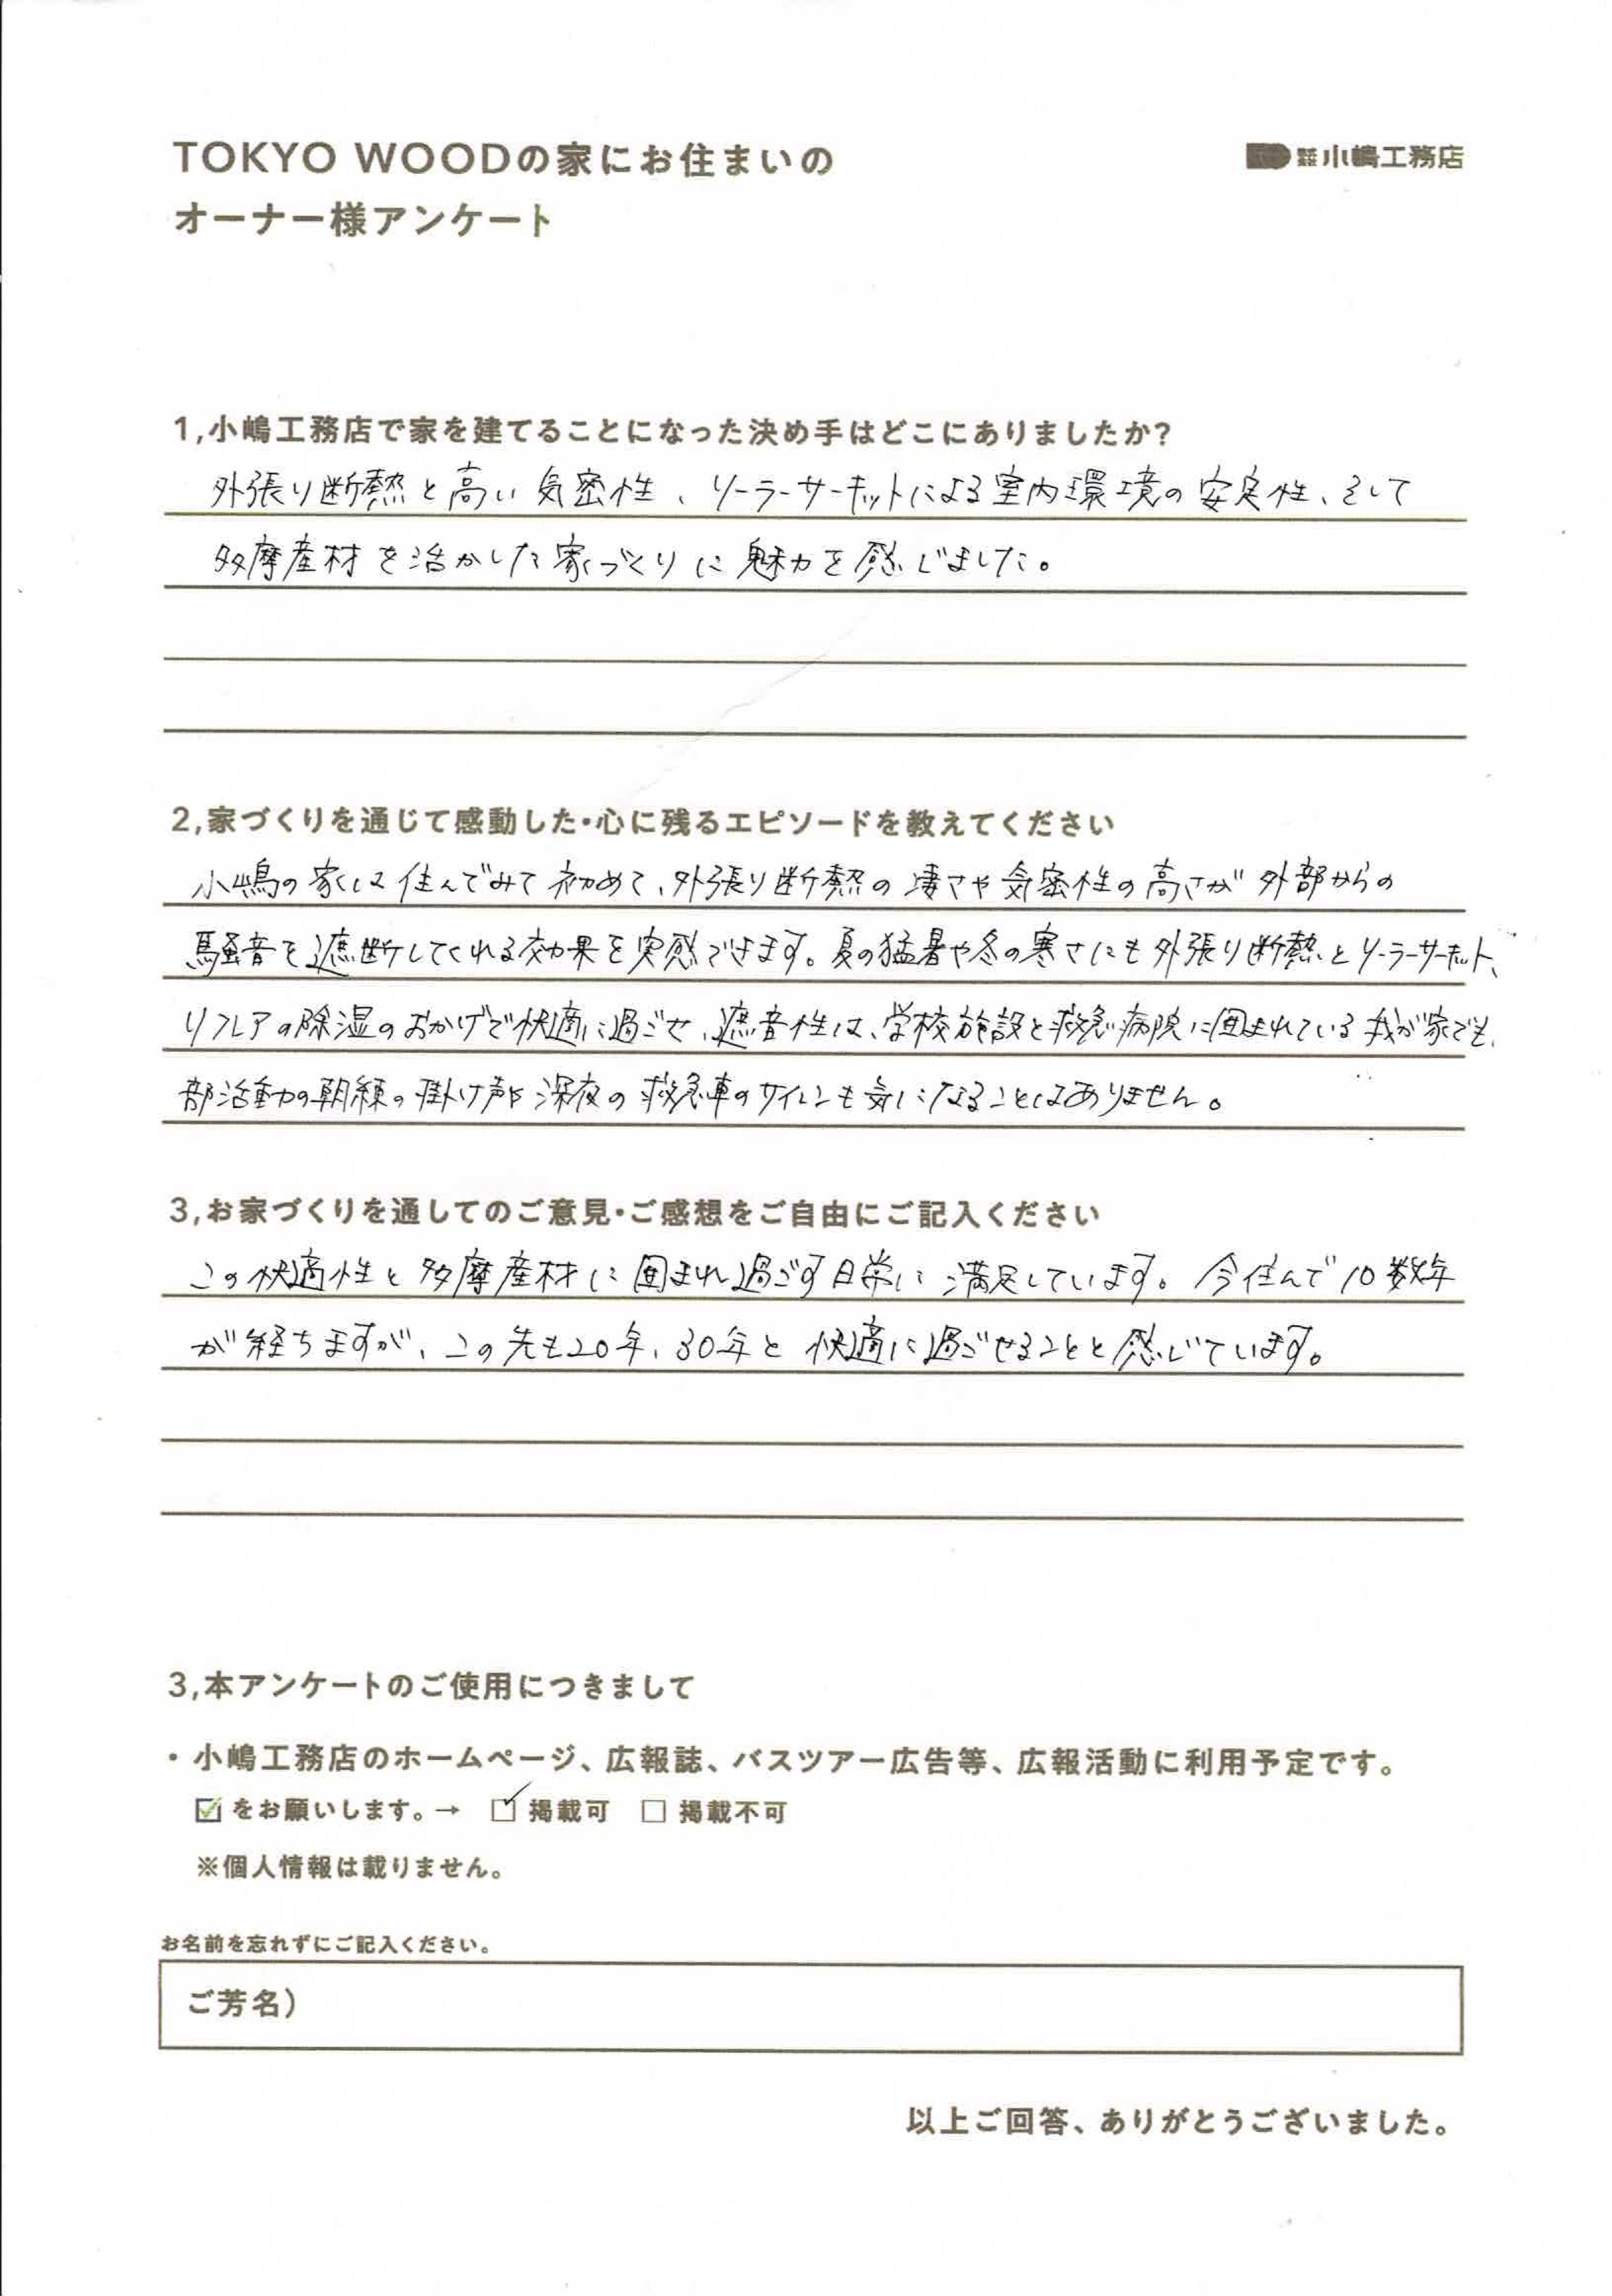 TOKYO WOODの家にお住まいの
オーナー様アンケート
株式会社 小嶋工務店
1,小嶋工務店で家を建てることになった決め手はどこにありましたか?
外張り断熱と高い気密性、ソーラーサーキットによる室内環境の安定性、そして
多摩産材を活かした家づくりに魅力を感じました。
2,家づくりを通じて感動した・心に残るエピソードを教えてください
小嶋の家には住んでみて初めて、外張り断熱の凄さや気密性の高さが外部からの
騒音を遮断してくれる効果を実感できます。夏の猛暑や冬の寒さにも外張り断熱とソーラーサーキット、
リフレアの除湿のおかげで快適に過ごせ、遮音性は、学校施設と救急病院に囲まれている我が家でも、
部活動の朝練の掛け声や深夜の救急車のサイレンも気になることはありません。
3,お家づくりを通してのご意見・ご感想をご自由にご記入ください
この快適性と多摩産材に囲まれ過ごす日常に満足しています。今住んで10数年
が経ちますが、この先も20年、30年と快適に過ごせることと感じています。
3,本アンケートのご使用につきまして
・小嶋工務店のホームページ、広報誌、バスツアー広告等、広報活動に利用予定です。
☑をお願いします。→ ☑ 掲載可 □ 掲載不可
※個人情報は載りません。
お名前を忘れずにご記入ください。
ご芳名)
以上ご回答、ありがとうございました。